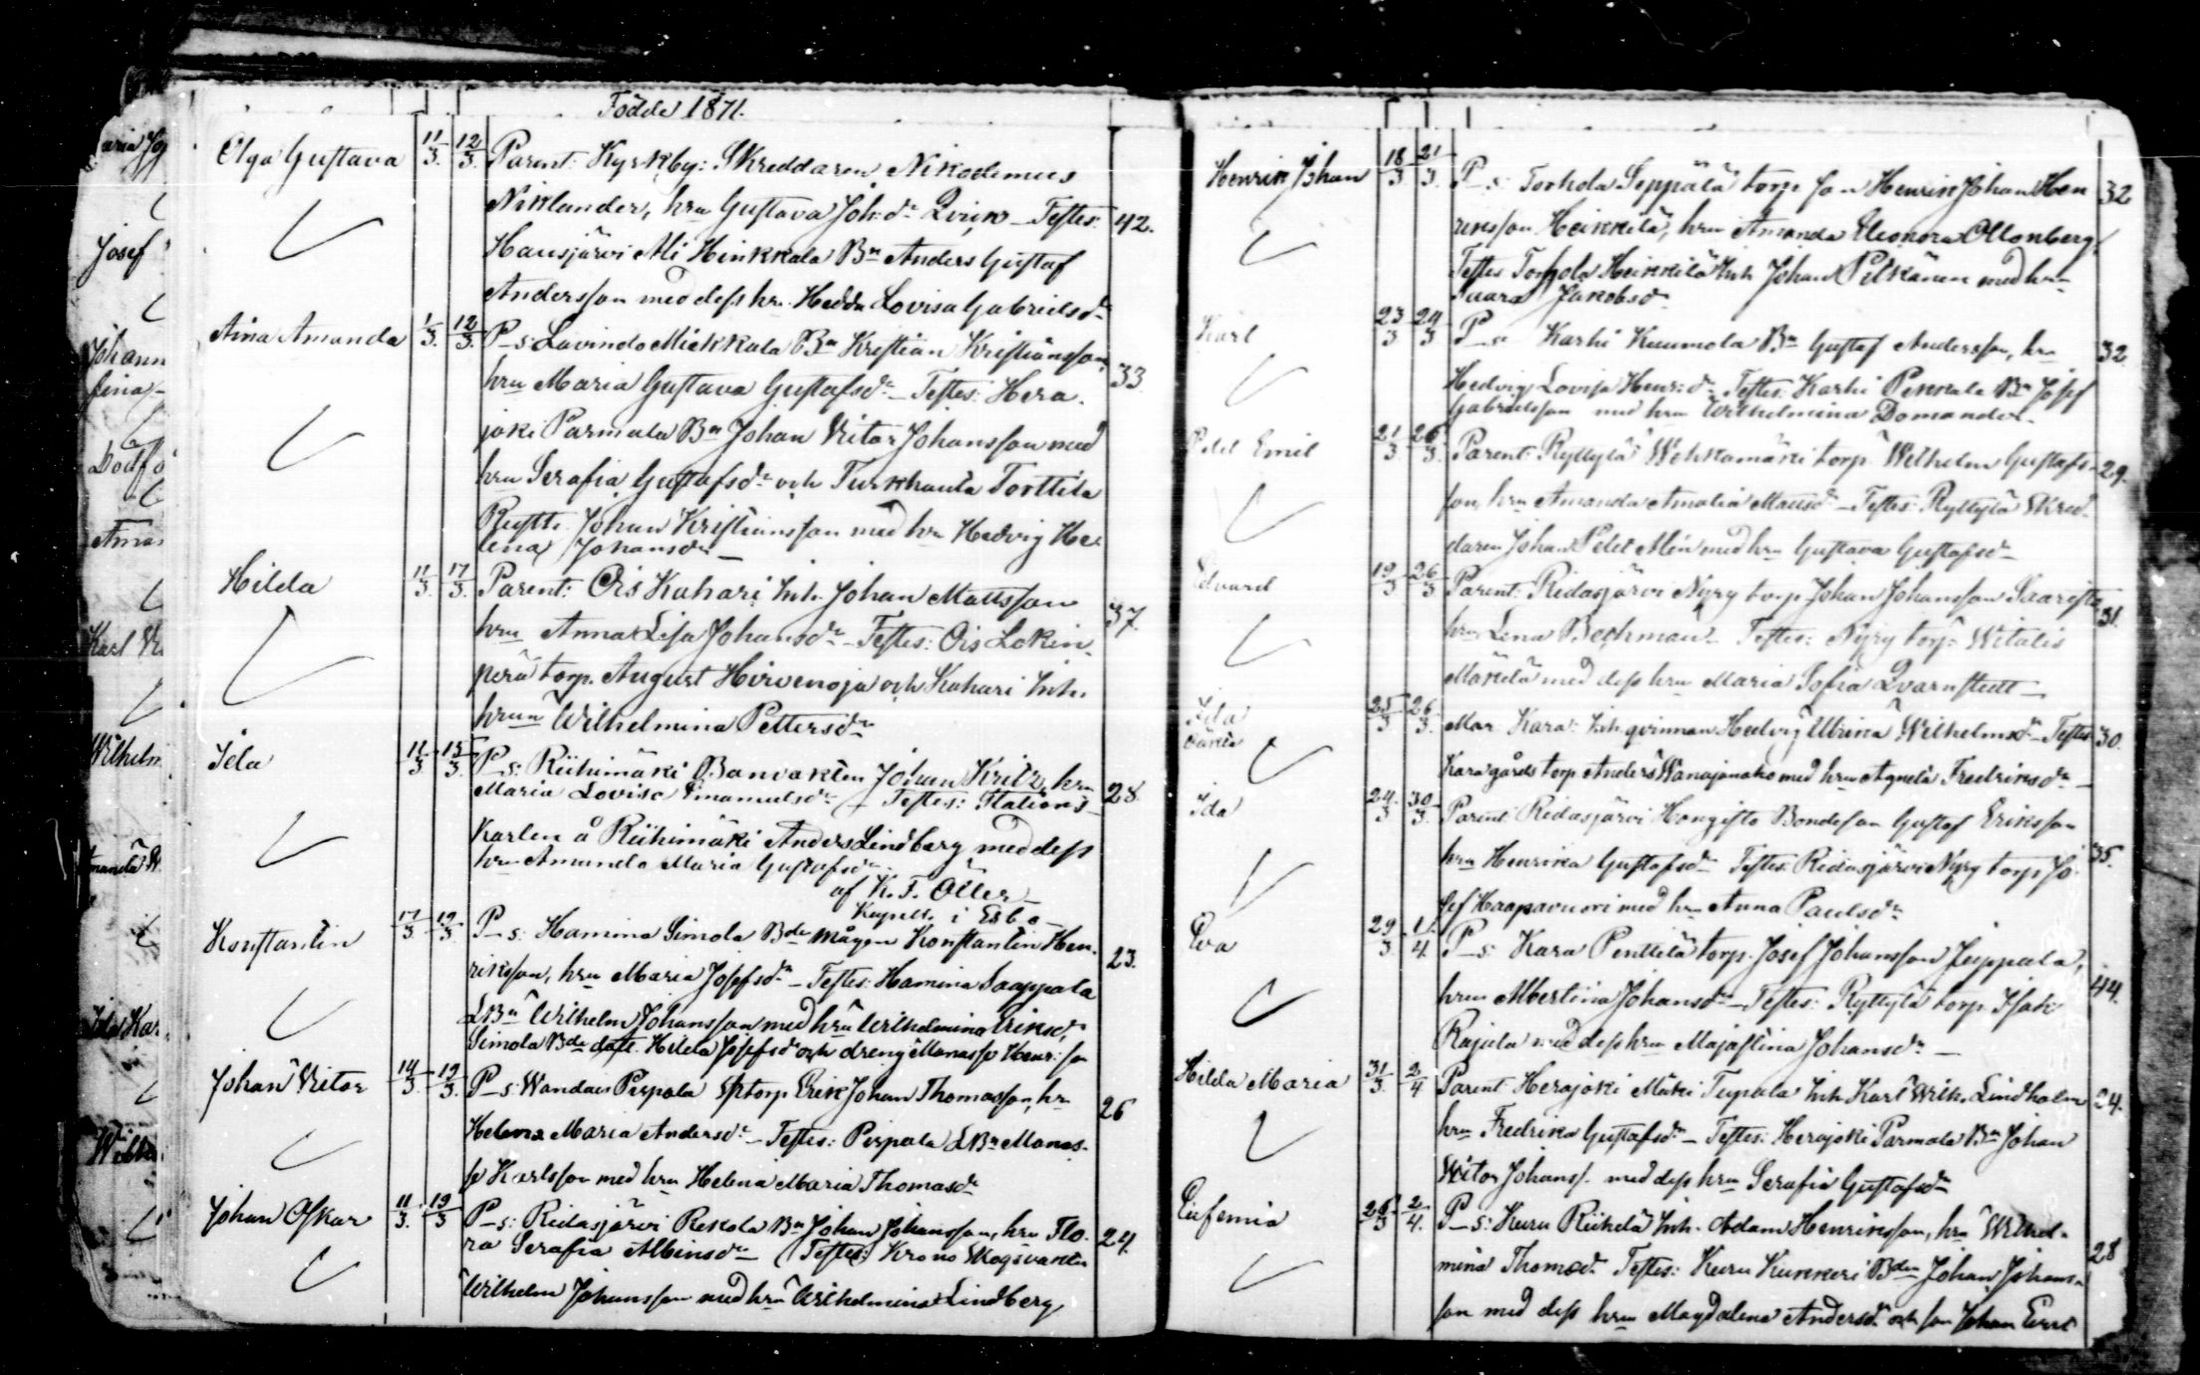 Födde 1871.
Olga Gustava 11/3. 12/3. Parent: Kyrkby: Skreddaren Nikodemus
Niklander, hru Gustava Joh:dr Qvick – Testes: 42.
Hausjärvi Ali Hinkkala Bn Anders Gustaf
Andersson med dess hru Hedda Lovisa Gabrielsdr
Aina Amanda 1/3. 12/3. P_s: Lavinda Miekkala Bn Kristian Kristiansson,
hru Maria Gustava Gustafsdr – Testes: Hera- 33
joki Parmala Bn Johan Victor Johansson med
hru Serafia Gustafsdr och Turkhauta Torttila
Rusth. Johan Kristiansson med hru Hedvig He-
lena Johansdr –
Hilda 11/3. 17/3. Parent: Ois Kahari Inh. Johan Mattsson
hru Anna Lisa Johansdr – Testes: Ois Lokin- 37.
perä torp. August Hirvenoja och Kahari Inh.
hrun Wilhelmina Pettersdr
Ida 11/3 15/3. P_s: Riihimäki Banvakten Johan Kritz, hru
Maria Lovisa Emanuelsdr – Testes: Stations- 28.
Karlen å Riihimäki Anders Lindberg med dess
hru Amanda Maria Gustafsdr
af K. F. Öller –
Kapell. i Esbo –
Konstantin 17/3. 19/3. P_s: Hamina Simola Bde mågen Konstantin Hen-
riksson, hru Maria Josefsdr – Testes: Hamina Saappala 23.
LBn Wilhelm Johansson med hru Wilhelmina Eriksdr,
Simola Bde dott. Hilda Josefsdr och dreng Manasse Henr:son
Johan Victor 14/3. 19/3. P_s: Wandais Pirpala Sptorp Erik Johan Thomasson, hru
Helena Maria Andersdr – Testes: Pirpala LBn Manas- 26
se Karlsson med hru Helena Maria Thomasdr
Johan Oskar 11/3. 19/3 P_s: Ridasjärvi Rekola Bn Johan Johansson, hru Flo-
ra Serafia Albinsdr – Testes: Krono Skogsvakten 24.
Wilhelm Johansson med hru Wilhelmina Lindberg,
Henrik Johan 18/3 21/3. P_s: Torhola Seppälä torp son Henrik Johan Hen 32
riksson Heikkilä, hru Amanda Eleonora Ollonberg,
Testes Torhola Heikkilä Inh Johan Pitkänen med hru
Saara Jakobsdr
Karl 23/3 24/3 P_s Karhi Kuumola Bn Gustaf Andersson, hru 32
Hedvig Lovisa Henr:dr Testes: Karhi Pekkala Bn Josef
Gabrielsson med hru Wilhelmina Domander.
Petel Emil 21/3 26/3. Parent: Ryttylä Wehkamäki torp. Wilhelm Gustafs- 29.
son, hru Amanda Amalia Mattsdr – Testes: Ryttylä Skred-
daren Johan Petel Alin med hru Gustava Gustafsdr
Edvard 19/3 26/3 Parent: Ridasjärvi Nyry torp Johan Johansson Saaristo 31.
hru Lena Beckman – Testes: Nyry torp. Witalis
Mäkelä med dess hru Maria Sofia Qvarnstedt –
Ida 25/3 26/3. Mar. Kara: Inh.qvinnan Hedvig Ulrika Wilhelmsdr – Testes 30.
oäkta
Kara gårds torp Anders Wanajanaho med hru Agneta Fredriksdr –
Ida 24/3 30/3. Parent Ridasjärvi Hongisto Bondeson Gustaf Eriksson
hru Henrika Gustafsdr Testes: Ridasjärvi Nyry torp Jo- 35.
sef Haapavuori med hru Anna Paulsdr
Eva 29/3 1/4. P_s: Kara Penttilä torp. Josef Johansson Jeeppala,
hrun Albertina Johansdr – Testes: Ryttylä torp. Isak 44.
Rajala med dess hru Majastina Johansdr –
Hilda Maria 31/3. 2/4 Parent Herajoki Mäki Tupala Inh Karl Wilh. Lindholm 24.
hru Fredrika Gustafsdr – Testes: Herajoki Parmala Bn Johan
Victor Johanss. med dess hru Serafia Gustafsdr
Eufemia 26/3 2/4. P_s: Kuru Riikelä Inh. Adam Henriksson, hru Wilhel-
mina Thomdr. Testes: Kuru Kukkeri Bden Johan Johans- 28
son med dess hru Magdalena Andersdr och son Johan Ernt
Josef
Johann
Karl Vi
Wilhelm
Ida Kar